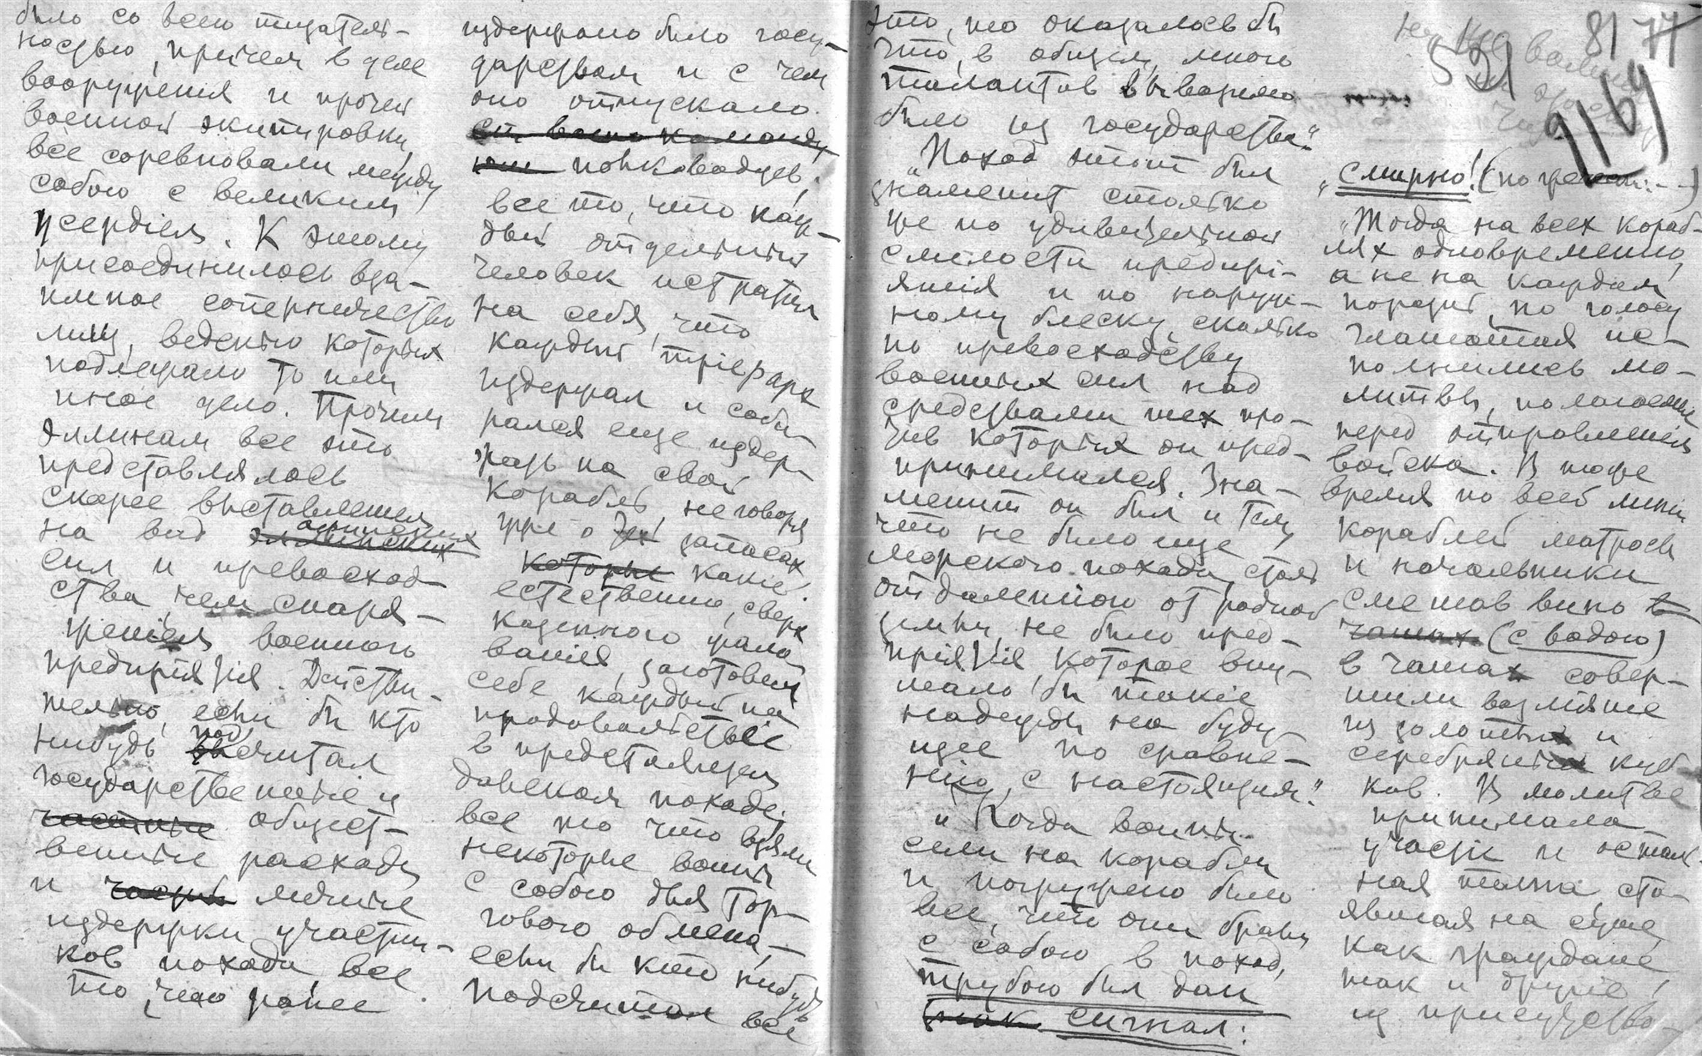 было со всею тщатель-
ностью, причем в деле
вооружения и прочей
военной экипировки,
все соревновали между
собою с великим
усердiем. К этому
присоединилось вза-
имное соперничество
лиц, ведению которых
подлежало то или
иное дело. Прочим
эллинам все это
представлялось
скорее выставлением
на вид эллинских афинских
сил и превосход-
ства, чем снаря-
женiем военного
предпрiятiя. Действи-
тельно, если бы кто
нибудь подсчитал
государственные и
частные общест-
венные расходы
и частн личные
издержки участни-
ков похода все
то, что ранее
издержано было госу-
дарством и с чем
оно отпускало
полководцев,
все то, что каж-
дый отдельный
человек истратил
на себя, что
каждый трiерарх
издержал и соби-
рался еще издер-
жать на свой
корабль, не говоря
уже о запасах,
которые какие
естественно, сверх
казенного жало-
ванiя, заготовил
себе каждый на
продовольствiе
в предстоящем
далеком походе,
все то что взяли
некоторые воины
с собою для тор-
гового обмена, –
если бы кто нибудь
подсчитал все
это, то оказалось бы
что, в общем, много
талантов вывезено
было из государства."
"Поход этот был
знаменит столько
же по удивительной
смелости предпрi-
ятiя и по наруж-
ному блеску, сколько
по превосходству
военных сил над
средствами тех про-
тив которых он пред-
принимался. Зна-
менит он был и тем,
что не было еще
морского похода, столь
отдаленного от родной
земли, не было пред-
прiятiя, которое вну-
шало бы такiе
надежды на буду-
щее по сравне-
нiю с настоящим."
"Когда воины
сели на корабли
и погружено было
все, что они брали
с собою в поход,
трубою был дан
знак сигнал:
81 77
521
1164
"Смирно!
"Тогда на всех кораб-
лях одновременно,
а не на каждом
порознь, по голосу
глашатая ис-
полнились мо-
литвы, положенные
перед отправлением
войска. В то же
время по всей линии
кораблей матросы
и начальники
смешав вино в
чашах (с водою)
в чашах совер-
шили возлiянiе
из золотых и
серебряных куб
ков. В молитве
принимала
участiе и осталь-
ная толпа, сто-
явшая на суше,
как граждане,
так и другiе
из присутство-